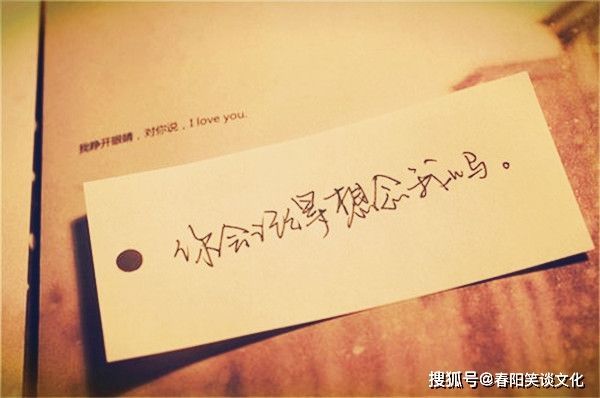 我睁开眼睛，对你说，I love you.
你会记得想念我吗。
搜狐号@春阳笑谈文化